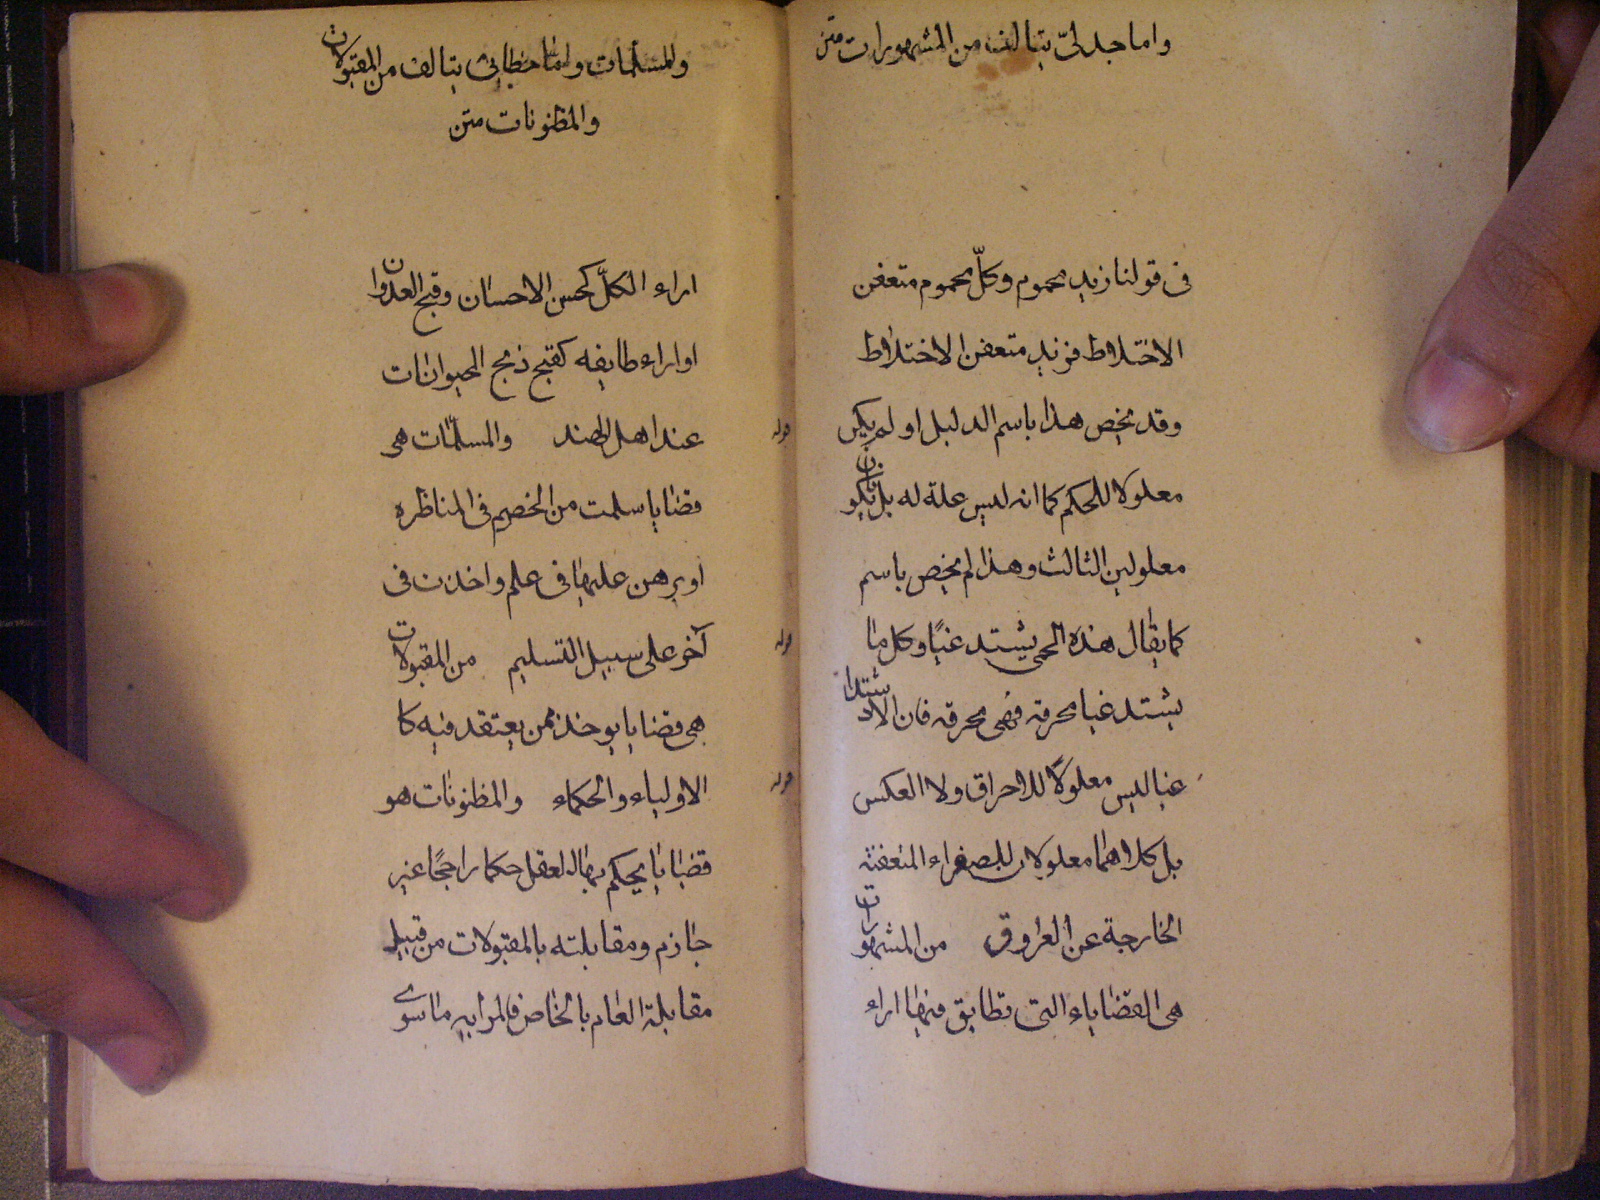 واما جدلىّ يتالف من المشهورات متن
فى قولنا زيد محموم وكلّ محموم متعفن
الاختلاط فزيد متعفن الاختلاط
وقد يخص هذا باسم الدليل او لم يكن
معلولا للحكم كما انه ليس علة له بل يكونان
معلولين الثالث وهذا لم يخص باسم
كما يقال هذه الحمى يشتد غبًا وكل ما
يشتد غبا محرقه فهى محرقه فان الاشتداد
غبا ليس معلولًا للاحراق ولا العكس
بل كلاهما معلولان للصفراء المتعفنة
الخارجة عن العروق من المشهورات
هى القضاياء التى تطابق فيها اراء
والمسلمات واما خطابى يتالف من المقبولات
والمظنونات متن
اراء الكلّ كحسن الاحسان وقبح العدوان
او اراء طايفه كقبح ذبح الحيوانات
قوله عند اهل الهند والمسلمات هى
قضايا سلمت من الخصم فى المناظره
او برهن عليها فى علم واخذت فى
قوله آخر على سبيل التسليم من المقبولات
هى قضايا يوخذ ممن يعتقد فيه كا
قوله الاولياء والحكماء والمظنونات هو
قضايا يحكم بها العقل حكما راجحًا غير
جازم ومقابلته بالمقبولات من قبيل
مقابلة العام بالخاص فالمراد به ما سوى